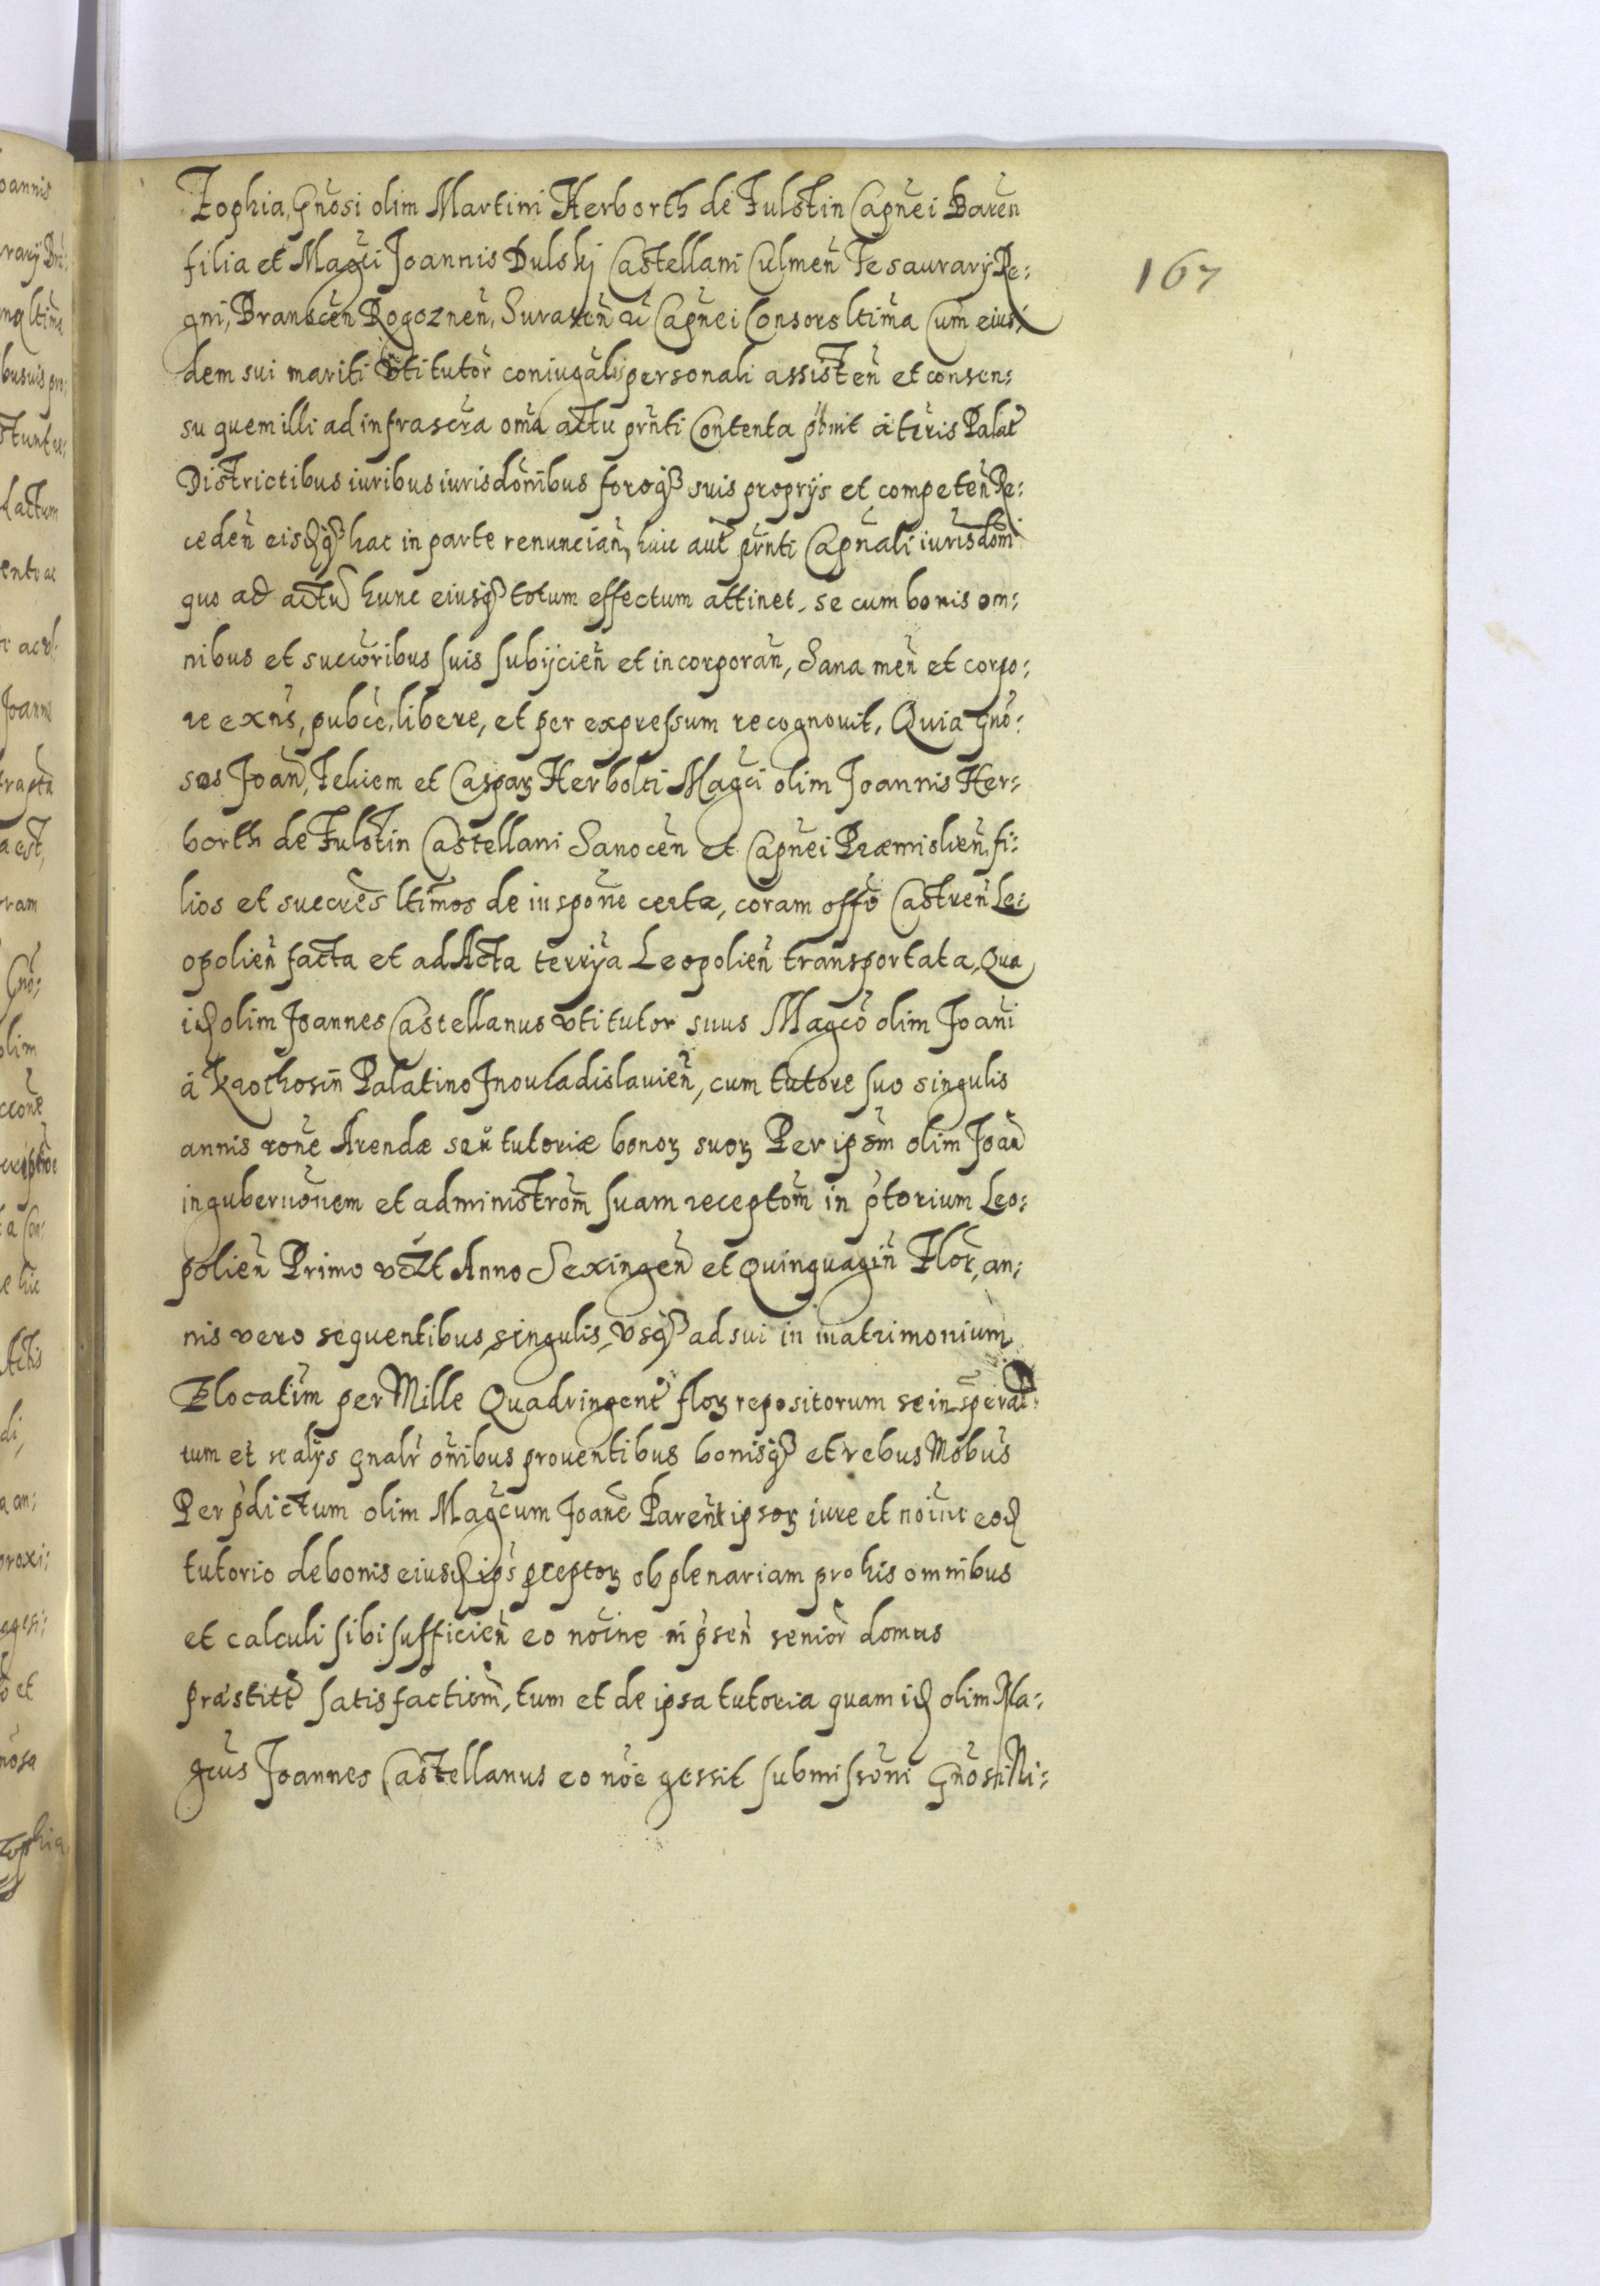 Zophia, Gnosi olim Martini Herborth de Fulstin Capnei Baren
filia et Magci Joannis Dulskj Castellani Culmen Tesaurarij Re:
gni, Branscen Rogoznen, Surasen &c Capnei Consors ltima Cum eius:
dem sui mariti vti tutor coniugalis personali assisten et consen:
su quem illi ad infrascra oma actu prnti Contenta pbuit à terris Palat
Districtibus iuribus iurisdonibus foroq suis proprijs et competen Re:
ceden eisdq hac in parte renuncian, huic aut prnti Capnali iurisdoni
quo ad actu hunc eiusq totum effectum attinet, se cum bonis om:
nibus et succoribus suis subijcien et incorporan, Sana men et corpo:
re exns, pubce, libere, et per expressum recognouit, Quia Gno:
sos Joan, Feliem et Caspar Herbolti Magci olim Joannis Her:
borth de Fulstin Castellani Sanocen et Capnei Præmislien fi:
lios et succres ltimos de inspone certa, coram offo Castren Le:
opolien facta et ad Acta terrija Leopolien transportata, Qua
id olim Joannes Castellanus vti tutor suus Magco olim Joani
à Krothosin Palatino Jnouladislauien, cum tutore suo singulis
annis rone Arendæ seu tutoriæ bonor suor Per ipsm olim Joan
in guberuonem et administrom suam receptom in ptorium Leo:
polien Primo vczt Anno Sexingen et Quinquagin Flor, an:
nis vero sequentibus singulis, vsq ad sui in matrimonium
Elocatim per Mille Quadringent flor repositorum se inspera:
tum et se alijs gnalr onibus prouentibus bonisq et rebus Mobus
Per pdictum olim Magcum Joane Parent ipsor iure et noine eod
tutorio de bonis eiusd ips pceptor ob plenariam pro his omnibus
et calculi sibi sufficien eo noine in psen senior domus
præstit satisfactiom, tum et de ipsa tutoria quam id olim Ma:
gcus Joannes Castellanus eo noe gessit submissoni Gnosi Ni:
167